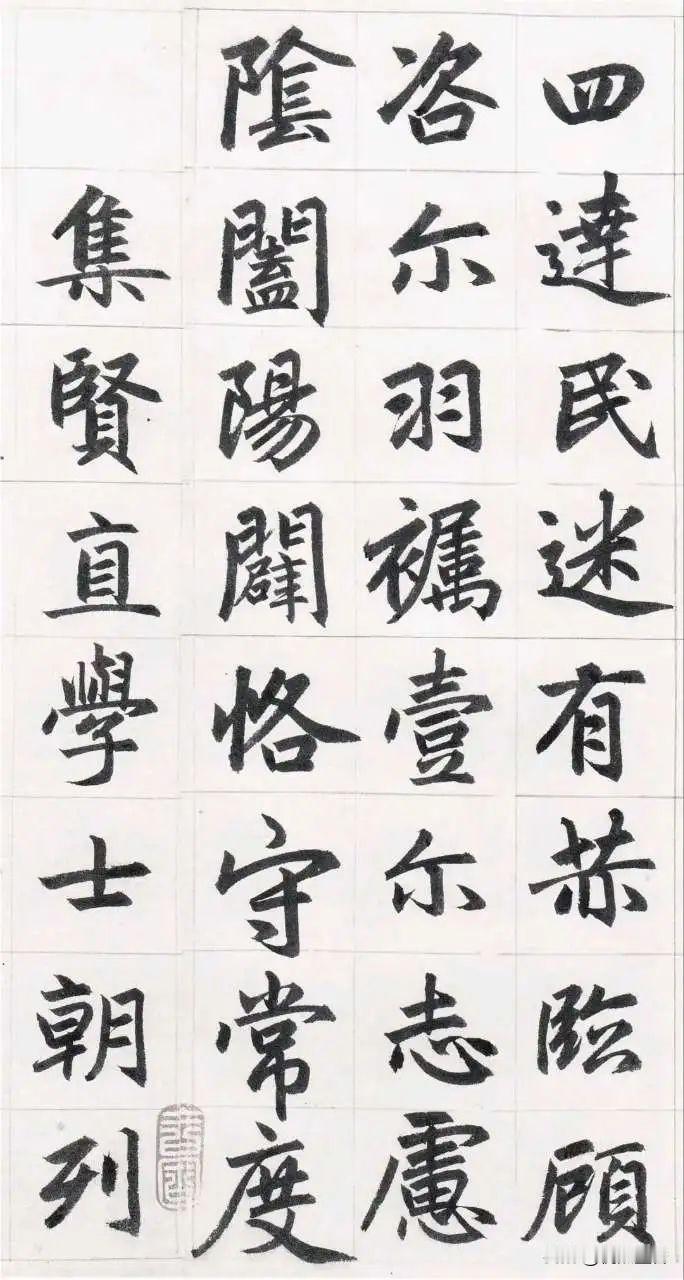 四達民迷有恭臨顧
咨尔羽壹尔志慮
陰闔陽闢恪守常度
集賢直學士朝列